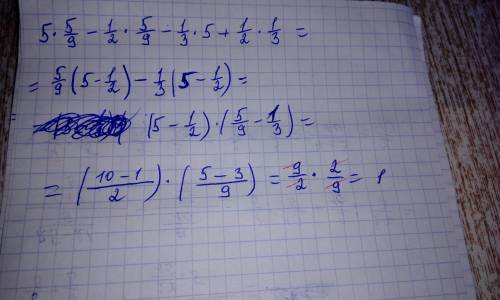 5 · 5/9 - 1/2 · 5/9 - 1/3 · 5 + 1/2 · 1/3 =
= 5/9 (5 - 1/2) - 1/3 (5 - 1/2) =
= (5 - 1/2) · (5/9 - 1/3) =
= (10 - 1/2) · (5 - 3/9) = 9/2 · 2/9 = 1